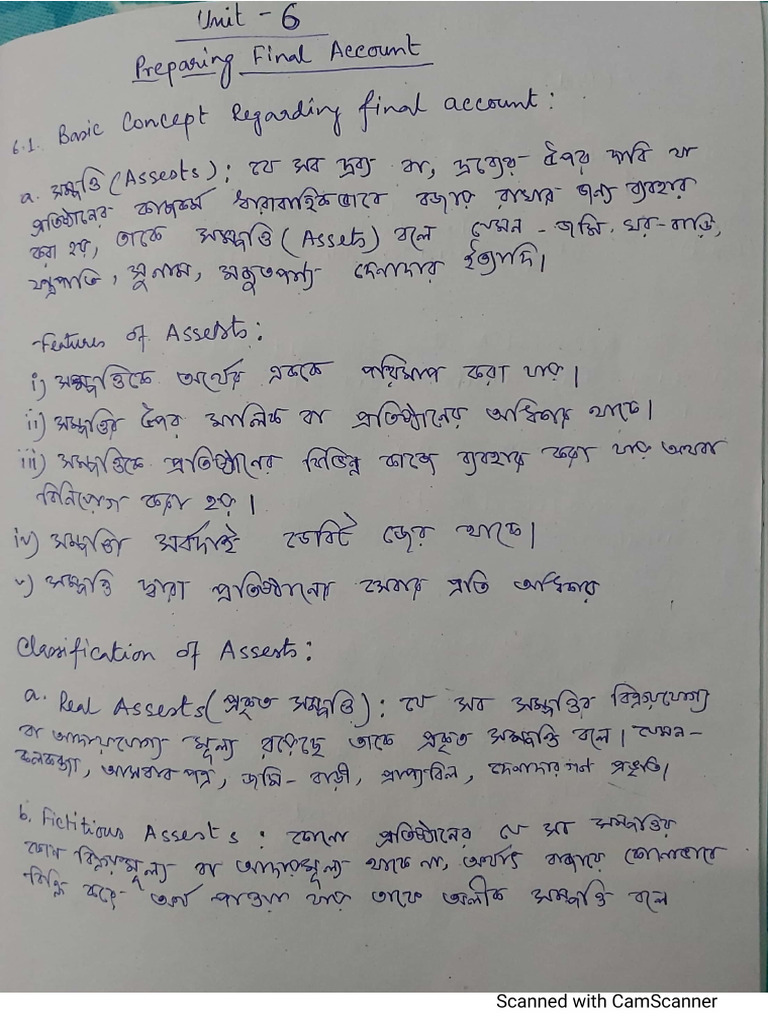 Unit - 6
Preparing Final Account
6.1. Basic Concept Regarding final account:
a. সম্পত্তি (Assests): যে সব দ্রব্য বা, দ্রব্যের উপর দাবি যা
প্রতিষ্ঠানের কাজকর্ম ধারাবাহিকভাবে বজায় রাখার জন্য ব্যবহার
করা হয়, তাকে সম্পত্তি (Assets) বলে যেমন - জমি, ঘর-বাড়ি,
যন্ত্রপাতি, সুনাম, মজুতপণ্য দেনাদার ইত্যাদি।
Features of Assests:
i) সম্পত্তিকে অর্থের এককে পরিমাপ করা যায়।
ii) সম্পত্তির উপর মালিক বা প্রতিষ্ঠানের অধিকার থাকে।
iii) সম্পত্তিকে প্রতিষ্ঠানের বিভিন্ন কাজে ব্যবহার করা যায় অথবা
বিনিয়োগ করা হয়।
iv) সম্পত্তি সর্বদাই ডেবিট জের থাকে।
v) সম্পত্তি দ্বারা প্রতিষ্ঠানের সেবার প্রতি অধিকার
Classification of Assests:
a. Real Assests (প্রকৃত সম্পত্তি): যে সব সম্পত্তির বিক্রয়যোগ্য
বা আদায়যোগ্য মূল্য রয়েছে তাকে প্রকৃত সম্পত্তি বলে। যেমন-
কলকব্জা, আসবাবপত্র, জমি-বাড়ী, প্রাপ্যবিল, দেনাদারগন প্রভৃতি।
b. Fictitious Assests: কোনো প্রতিষ্ঠানের যে সব সম্পত্তির
কোন বিক্রয়মূল্য বা আদায়মূল্য থাকে না, অর্থাৎ বাজারে কোনোভাবে
বিক্রি করে অর্থ পাওয়া যায় তাকে অলীক সম্পত্তি বলে
Scanned with CamScanner